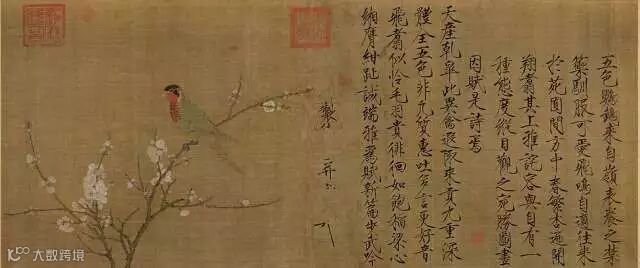 五色鸚鵡來自嶺表養之禁
籞馴服可愛飛鳴自適往來
於苑囿間方中春繁杏遍開
翔翥其上雅詫容與自有一
種態度縱目觀之宛勝圖畫
因賦是詩焉
天產乾皐此異禽遐陬來貢九重深
體全五色非凡質惠吐多言更好音
飛翥似憐毛羽貴徘徊如飽稻粱心
緗膺紺趾誠端雅為賦新篇步武吟
製
并
大数跨境